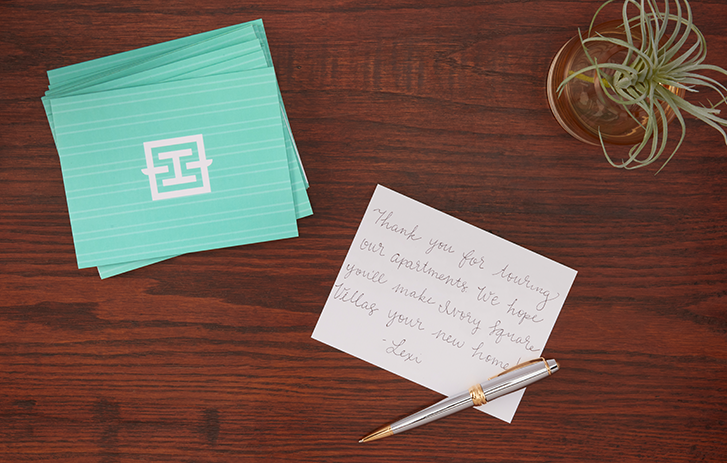 Thank you for touring
our apartments We hope
you'll make Ivory Square
Villas your new home!
- Lexi